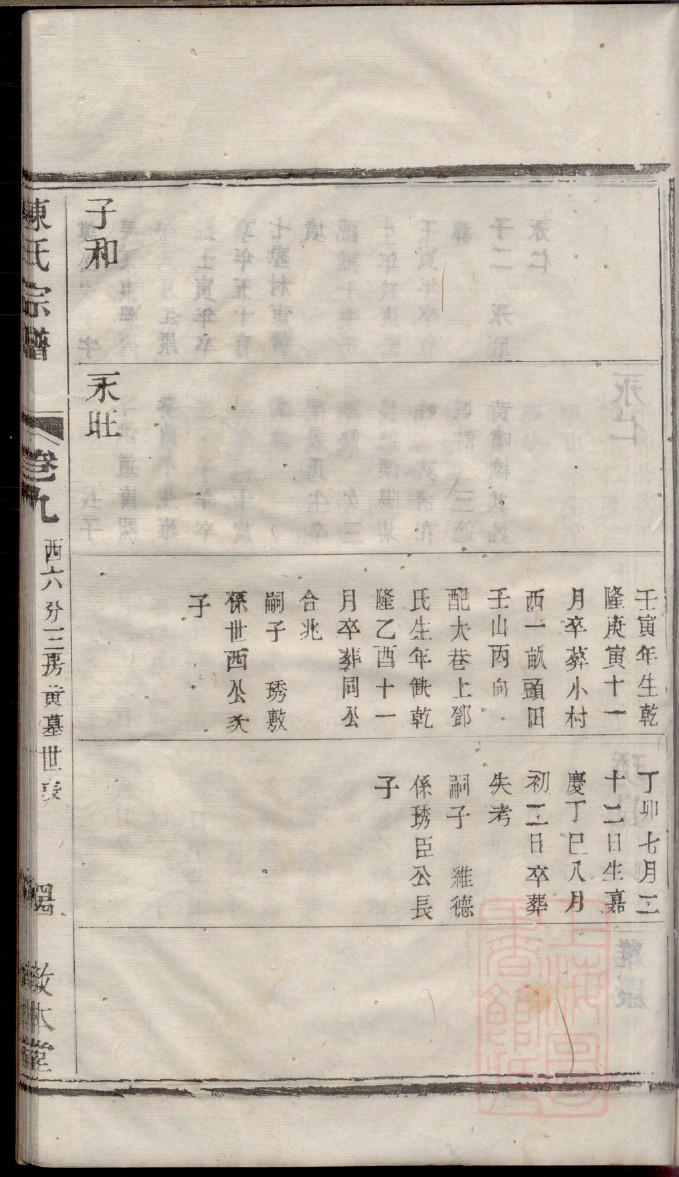 壬寅年生乾
隆庚寅十一
月卒葬小村
西一畝頭田
壬山丙向
配大巷上鄧
氏生年缺乾
隆乙酉十一
月卒葬同公
合兆
嗣子　琇敷
係世西公次
子
丁卯七月二
十二日生嘉
慶丁巳八月
初二日卒葬
失考
嗣子　維德
係琇臣公長
子
子和
永壯
陳氏宗譜
卷九
西六分三房黃墓世表
敦本堂
上海圖書館藏